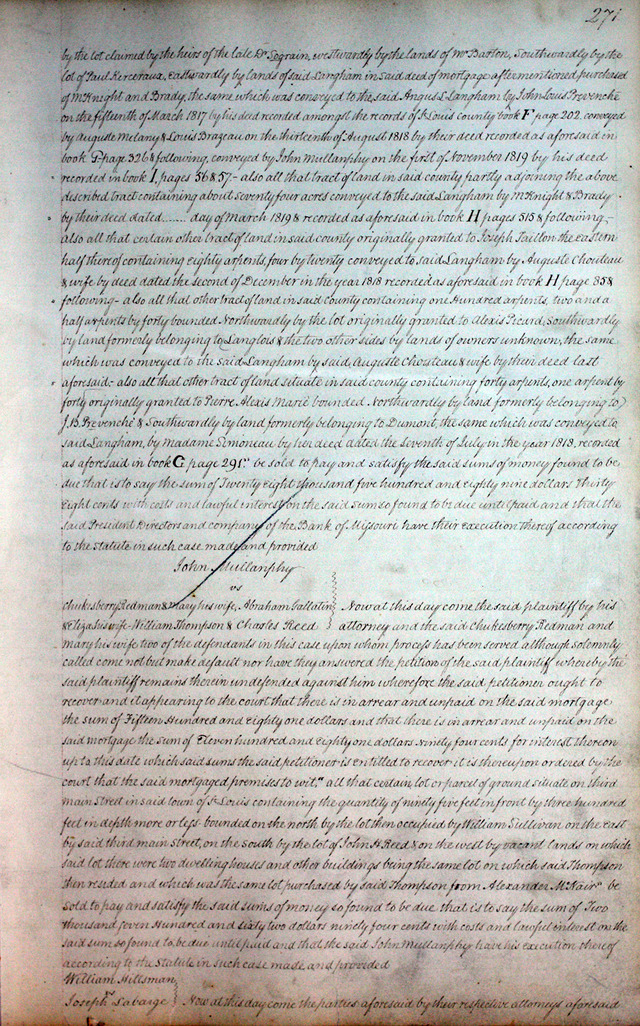 271
by the lot claimed by the heirs of the late Dr Sograin, westwardly by the lands of Wm Barton, Southwardly by the
lot of Paul Kerceraux, Eastwardly by lands of said Langham in said deed of mortgage aftermentioned purchased
of McKnight and Brady, the same which was conveyed to the said Angus L Langham by John Louis Prevenche
on the fifteenth of March 1817 by his deed recorded amongst the records of St Louis county book F page 202, conveyed
by Auguste Melany & Louis Brazeau on the thirteenth of August 1818 by their deed recorded as aforesaid in
book G page 326 & following, conveyed by John Mullanphy on the first of November 1819 by his deed
recorded in book I, pages 56 & 57 - also all that tract of land in said county partly adjoining the above
described tract containing about seventy four acres conveyed to the said Langham by McKnight & Brady
by their deed dated ...... day of March 1819 & recorded as aforesaid in book H pages 515 & following,-
also all that certain other tract of land in said county originally granted to Joseph Taillon the eastern
half thereof containing eighty arpents, four by twenty conveyed to said Langham by Auguste Chouteau
& wife by deed dated the second of December in the year 1818 recorded as aforesaid in book H page 85 &
following - also all that other tract of land in said county containing one Hundred arpents, two and a
half arpents by forty bounded Northwardly by the lot originally granted to Alexis Picard, Southwardly
by land formerly belonging to Langlois & the two other sides by lands of owners unknown, the same
which was conveyed to the said Langham by said Auguste Chouteau & wife by their deed last
aforesaid:- also all that other tract of land situate in said county containing forty arpents, one arpent by
forty originally granted to Pierre Alexis Marié bounded Northwardly by land formerly belonging to
J.B. Prevenché & Southwardly by land formerly belonging to Dumont, the same which was conveyed to
said Langham, by madame Simoneau by her deed dated the Seventh of July in the year 1818, recorded
as aforesaid in book G page 291" be sold to pay and satisfy the said sums of money found to be
due that is to say the sum of Twenty Eight thousand five hundred and eighty nine dollars Thirty
Eight cents with costs and lawful interest on the said sum so found to be due until paid and that the
said President Directors and company of the Bank of Missouri have their execution thereof according
to the statute in such case made and provided
John Mullanphy
vs
Chukesberry Redman & Mary his wife, Abraham Gallatin
& Eliza his wife William Thompson & Charles Reed
Now at this day come the said plaintiff by his
attorney and the said Chukesberry Redman and
mary his wife two of the defendants in this case upon whom process has been served although solemnly
called come not but make default nor have they answered the petition of the said plaintiff whereby the
said plaintiff remains therein undefended against him wherefore the said petitioner ought to
recover and it appearing to the court that there is in arrear and unpaid on the said mortgage
the sum of Fifteen Hundred and Eighty one dollars and that there is in arrear and unpaid on the
said mortgage the sum of Eleven hundred and Eighty one dollars Ninety four cents for interest thereon
up to this date which said sums the said petitioner is entitled to recover it is thereupon ordered by the
court that the said mortgaged premises to wit," all that certain lot or parcel of ground situate on third
main street in said town of St Louis containing the quantity of ninety five feet in front by three hundred
feet in depth more or less bounded on the north by the lot then occupied by William Sullivan on the east
by said third main street, on the south by the lot of John H Reed & on the west by vacant lands on which
said lot there were two dwelling houses and other buildings being the same lot on which said Thompson
then resided and which was the same lot purchased by said Thompson from Alexander McNair" be
sold to pay and satisfy the said sums of money so found to be due that is to say the sum of Two
thousand seven Hundred and sixty two dollars ninety four cents with costs and lawful interest on the
said sum so found to be due until paid and that the said John Mullanphy have his execution thereof
according to the statute in such case made and provided
William Hillsman
vs
Joseph Labarge } Now at this day come the parties aforesaid by their respective attorneys aforesaid